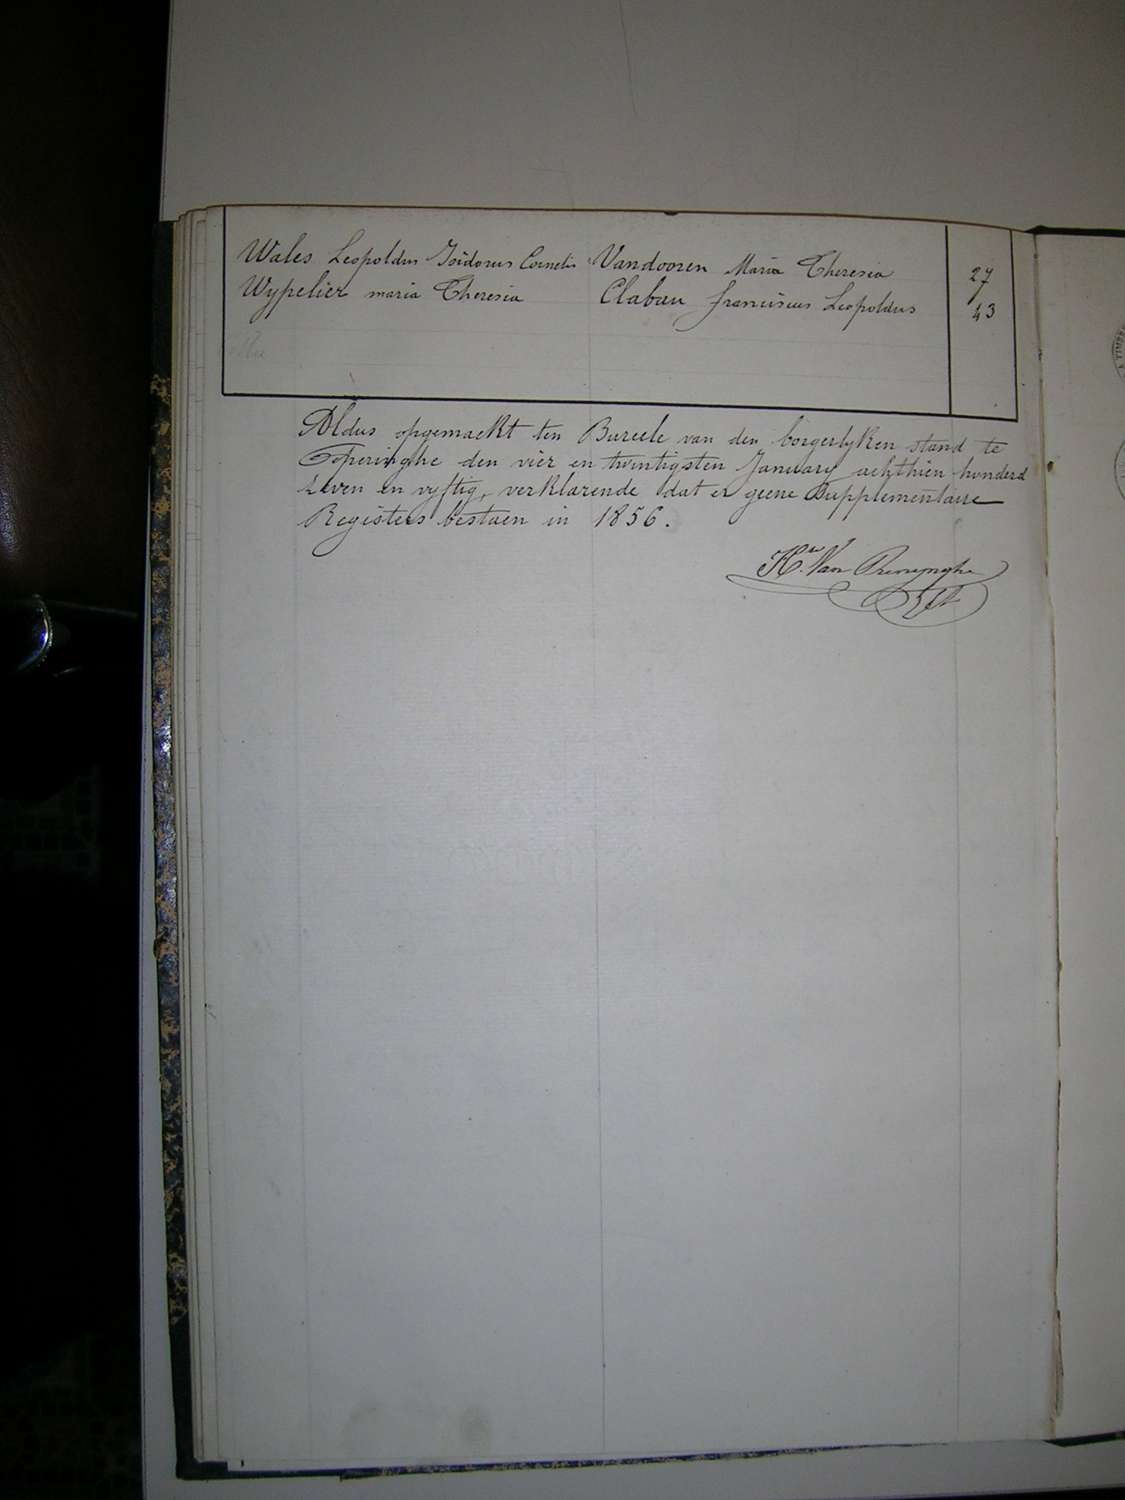 Wales Leopoldus Isidorus Cornelis Vandooren Maria Theresia 27
Wypelier maria Theresia Clabau franciscus Leopoldus 43
Aldus opgemaekt ten Bureele van den borgerlyken stand te
Poperinghe den vier en twintigsten January achthien honderd
zeven en vyftig, verklarende dat er geene Supplementaire
Registers bestaen in 1856.
Van